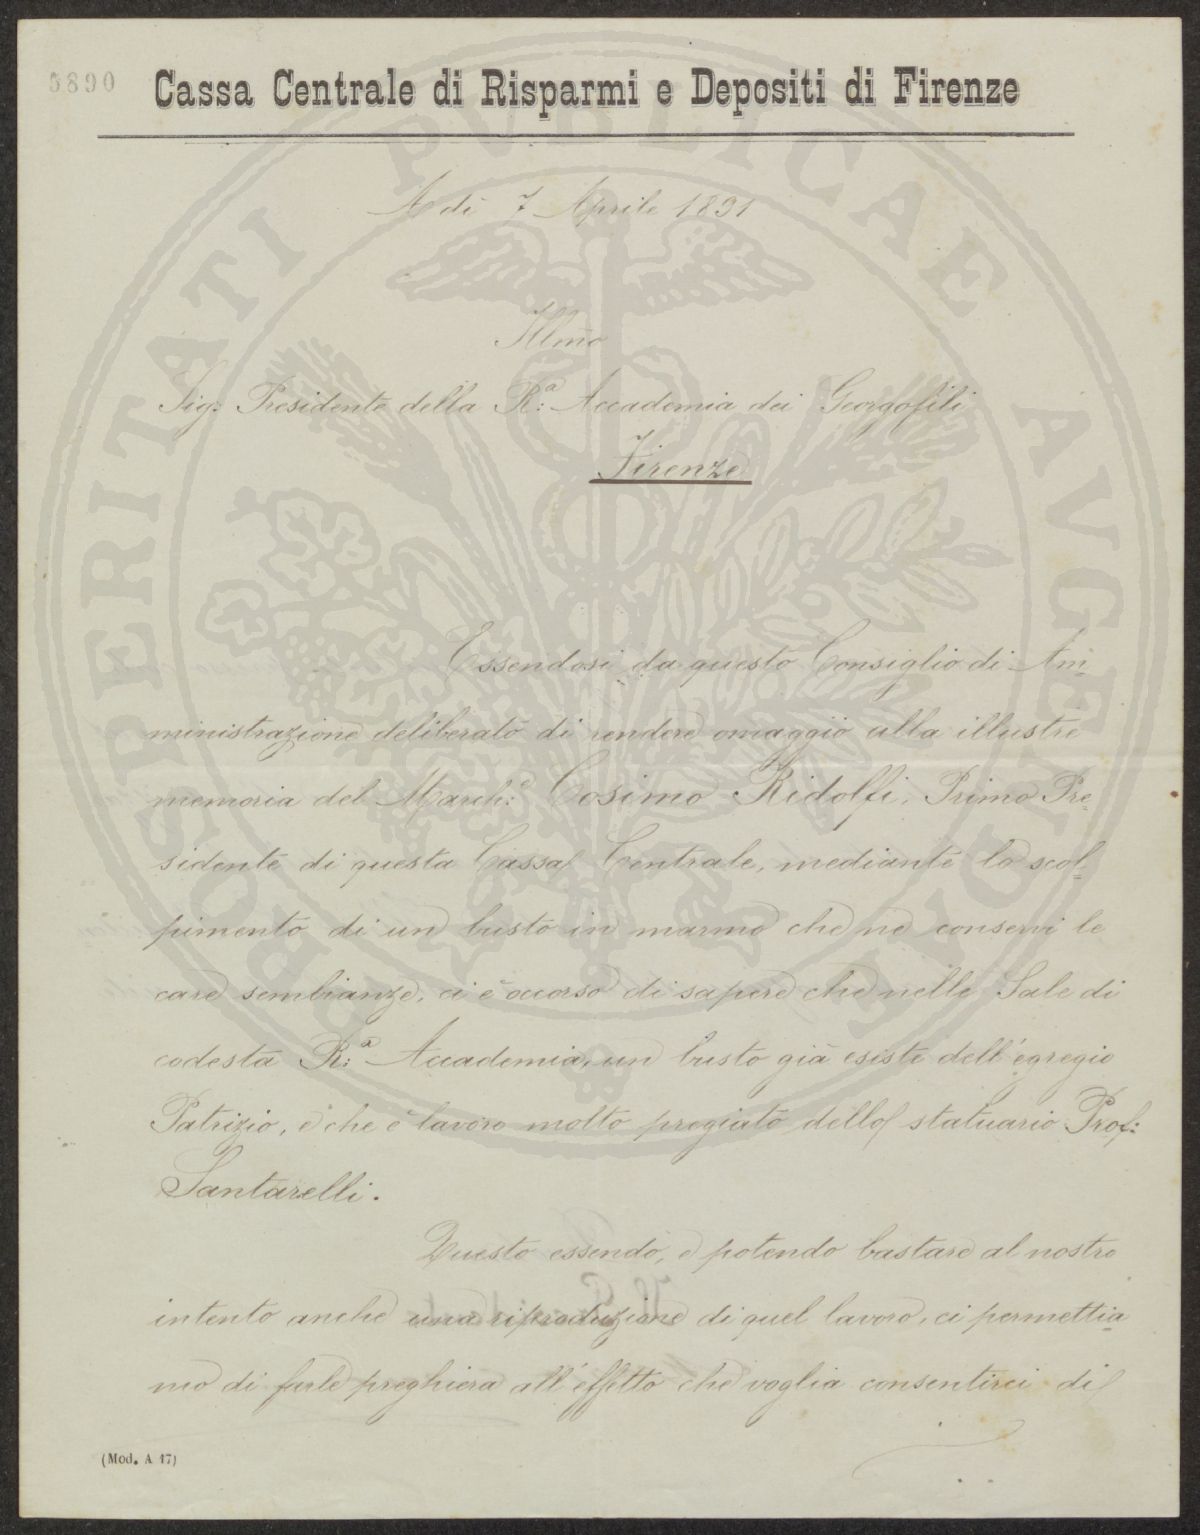 5890
Cassa Centrale di Risparmi e Depositi di Firenze
A dì 7 Aprile 1891
Illmo
Sig: Presidente della R:a Accademia dei Georgofili
Firenze
Essendosi da questo Consiglio di Am=
ministrazione deliberato di rendere omaggio alla illustre
memoria del March:e Cosimo Ridolfi, Primo Pre=
sidente di questa Cassa Centrale, mediante lo scol=
pimento di un busto in marmo che ne conservi le
care sembianze, ci è occorso di sapere che nelle Sale di
codesta R:a Accademia, un busto già esiste dell'egregio
Patrizio, e che è lavoro molto pregiato dello statuario Prof:
Santarelli.
Questo essendo, e potendo bastare al nostro
intento anche una riproduzione di quel lavoro, ci permettia
mo di farle preghiera all'effetto che voglia consentirci di
(Mod. A 17)
PROSPERITATI PVBLICAE AVGENDAE